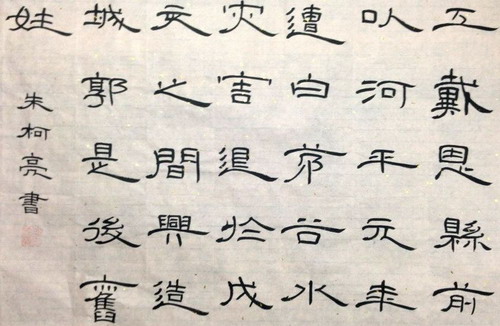 工戴恩縣前
以河平元年
遭白茅谷水
灾害退於戊
亥之間興造
城郭是後舊
姓
朱柯亮書